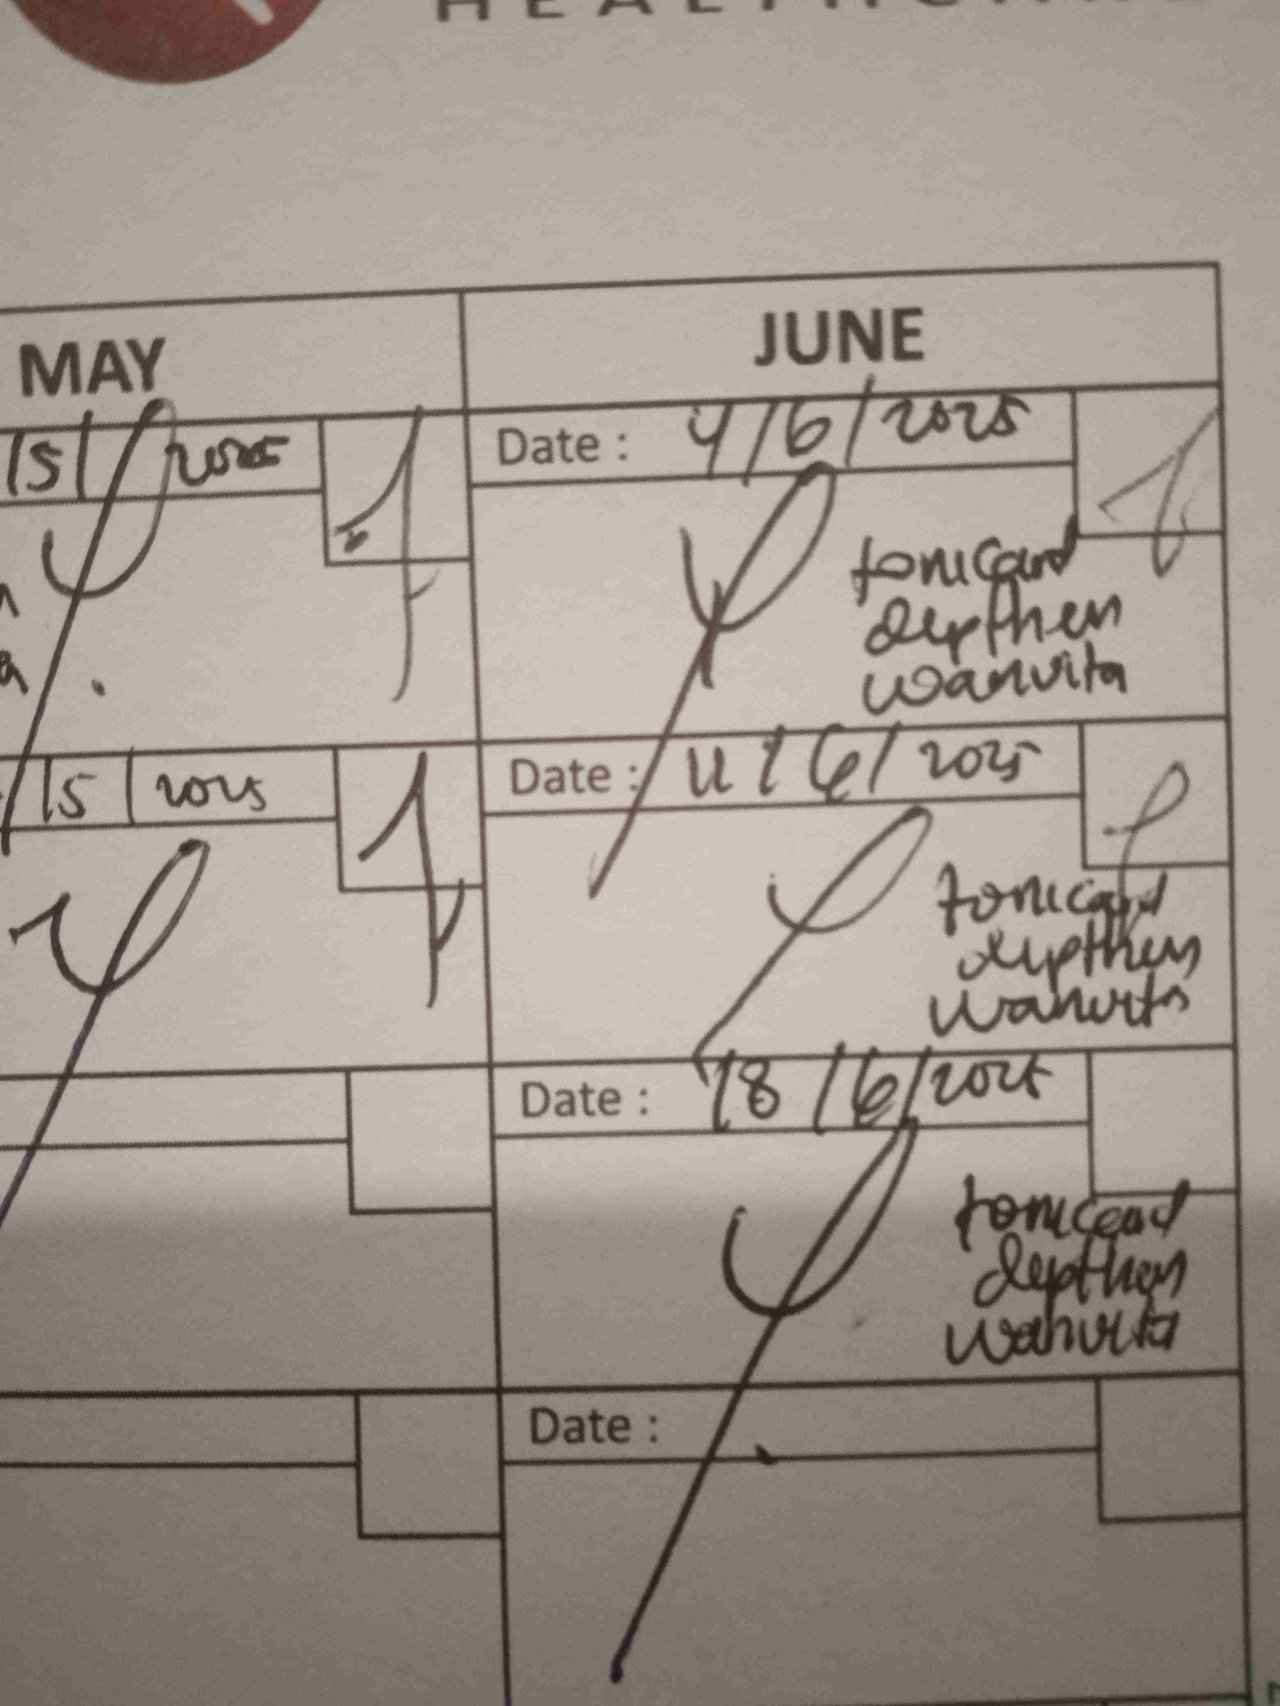 HEALTHCARE
MAY
JUNE
/5/ 2025
Date : 4/6/2025
tonicard
depthen
wanvita
/5/ 2025
Date : 11/6/2025
tonicard
depthen
wanvita
Date : 18/6/2025
tonicard
depthen
wanvita
Date :